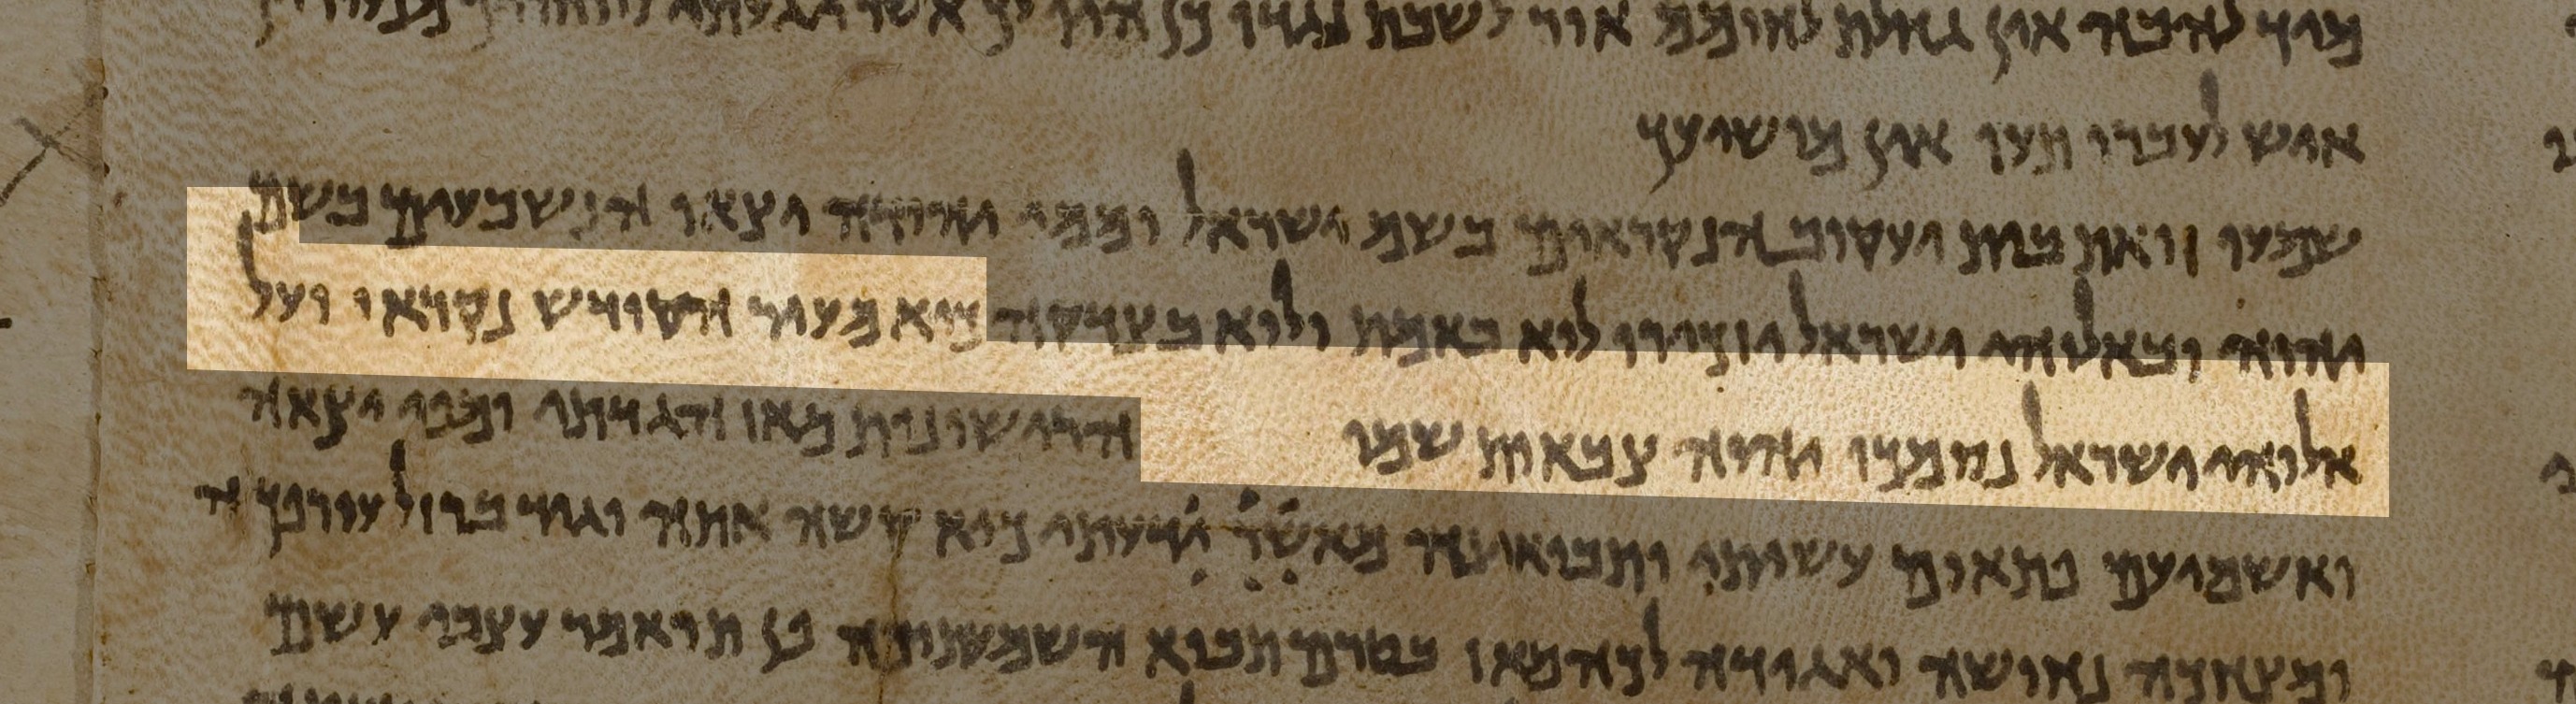 מיד להבה אין גחלת לחומם אור לשבת נגדו כן היו לך אשר
איש לעברו תעו אין מושיעך
שמעו זואת בית יעקוב הנקראים בשם ישראל וממי יהודה יצאו הנשבעים בשם
יהוה ובאלוהי ישראל יזכירו לוא באמת ולוא בצדקה כיא מעיר הקודש נקראו ועל
אלוהי ישראל נסמכו יהוה צבאות שמו הרישונות מאז הגידתי ומפי יצאה
ואשמיעם פתאום עשיתי ותבואינה מאשר ידעתי כיא קשה אתה וגיד ברזל עורפך ה
ומצחכה נחושה ואגידה לכה מאז בטרם תבוא השמעתיכה פן תואמר עצבי עשם